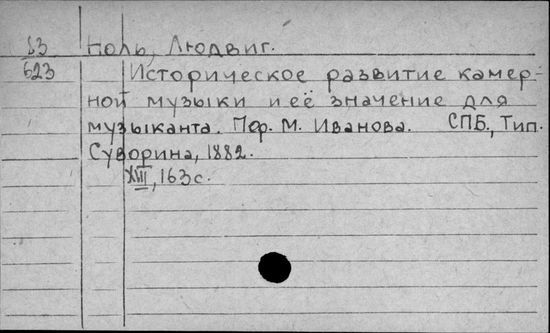 53 Ноль, Людвиг.
623 Историческое развитие камер-
ной музыки и её значение для
музыканта. Пер. М. Иванова. СПБ., Тип.
Суворина, 1882.
XIII, 163с.